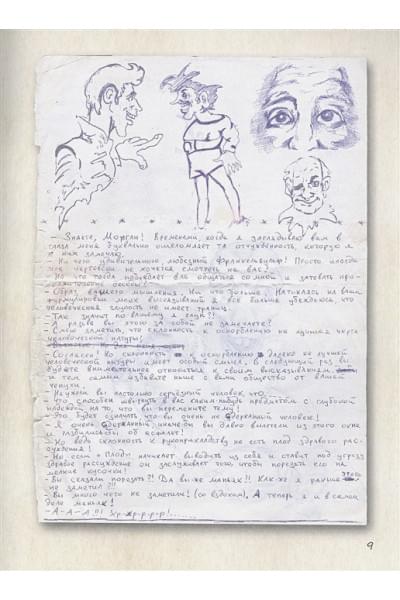 - Знаете, Морган! Временами, когда я заглядываю вам в
глаза меня буквально ошеломляет та отчуждённость, которую я
в них замечаю.
- Ни чего удивительного, любезный Франкенштейн! Просто иногда
мне чертовски не хочется смотреть на вас?
- Но что тогда побуждает вас общаться со мной и затевать
- Образ вашего мышления. Ни что больше. Натыкаясь на ваши
формулировки моих высказываний я всё больше убеждаюсь, что
человеческая глупость не имеет границ.
- Так значит по вашему я глуп?!
- А разве вы этого за собой не замечаете?
- Смею заметить, что склонность к оскорблению не лучшая черта
человеческой натуры!
- Согласен! Но склонность к оскорблению далеко не лучшей
человеческой натуры имеет особый смысл. В следующий раз вы
будете внимательнее относиться к своим высказываниям,
и тем самым избавите нашу с вами общество от вашей
чепухи.
- Неужели вы настолько серьёзный человек, что
- Что, способен швырнуть в вас каким-нибудь предметом с глубокой
надеждой на то, что вы перемените тему!
- Это будет означать, что вы очень не сдержанный человек!
- Я очень сдержанный иначе бы вы давно вылетели из этого окна
и разбились об асфальт!
- Но ведь склонность к рукоприкладству не есть плод здравого рас-
суждения!
- Но если "Плод" начинает выводить из себя и ставит под угрозу
здравое рассуждение он заслуживает того чтобы порезать его на
мелкие кусочки!
- Вы сказали порезать?! Да вы же маньяк!! Как же я раньше этого
не заметил?!!
- Вы много чего не заметили! (со вздохом). А теперь я и в самом
деле маньяк!
- А-А-А!!! Хр-хр-р-р-р!......
9